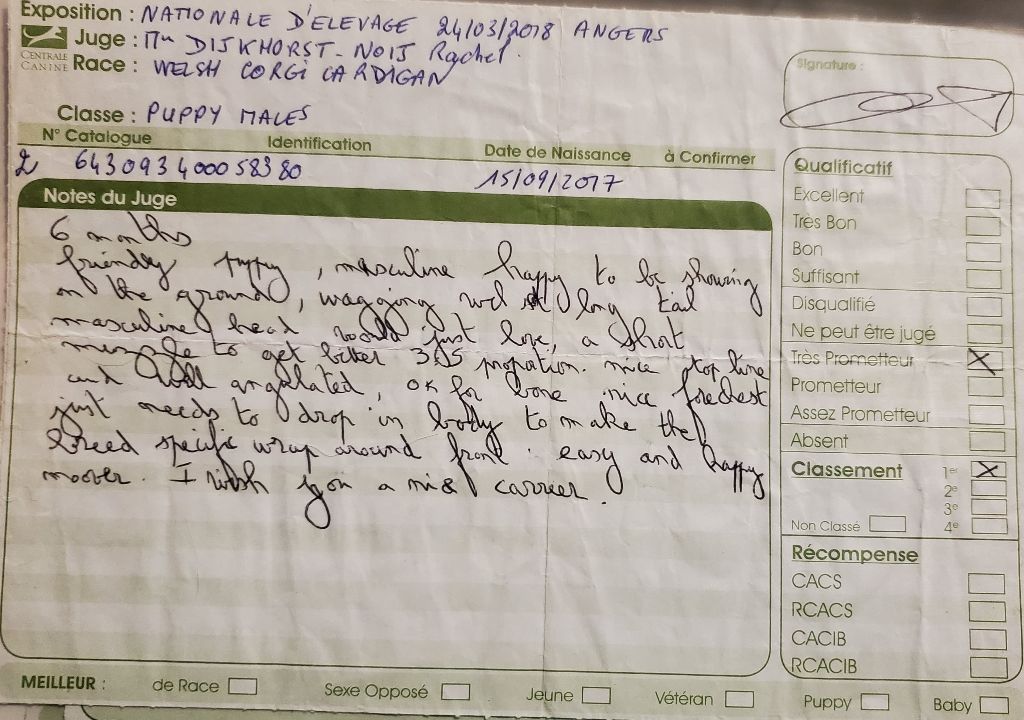 Exposition : NATIONALE D'ELEVAGE 24/03/2018 ANGERS
Juge : Mme DIJKHORST-NOIJ Rachel
CENTRALE CANINE
Race : WELSH CORGI CARDIGAN
Classe : PUPPY MALES
N° Catalogue Identification Date de Naissance à Confirmer
2 643093400058380 15/09/2017
Notes du Juge
6 months
friendly puppy, masculine happy to be showing
on the ground, wagging long tail
masculine head would just love, a short
muzzle to get better 3:5 propation. nice top line
and well angulated, ok for bone nice forechest
just needs to drop in body to make the
breed specific wrap around front. easy and happy
moover. I wish you a nice carrier.
Signature :
Qualificatif
Excellent
Très Bon
Bon
Suffisant
Disqualifié
Ne peut être jugé
Très Prometteur X
Prometteur
Assez Prometteur
Absent
Classement 1er X
2e
3e
Non Classé 4e
Récompense
CACS
RCACS
CACIB
RCACIB
MEILLEUR : de Race Sexe Opposé Jeune Vétéran Puppy Baby